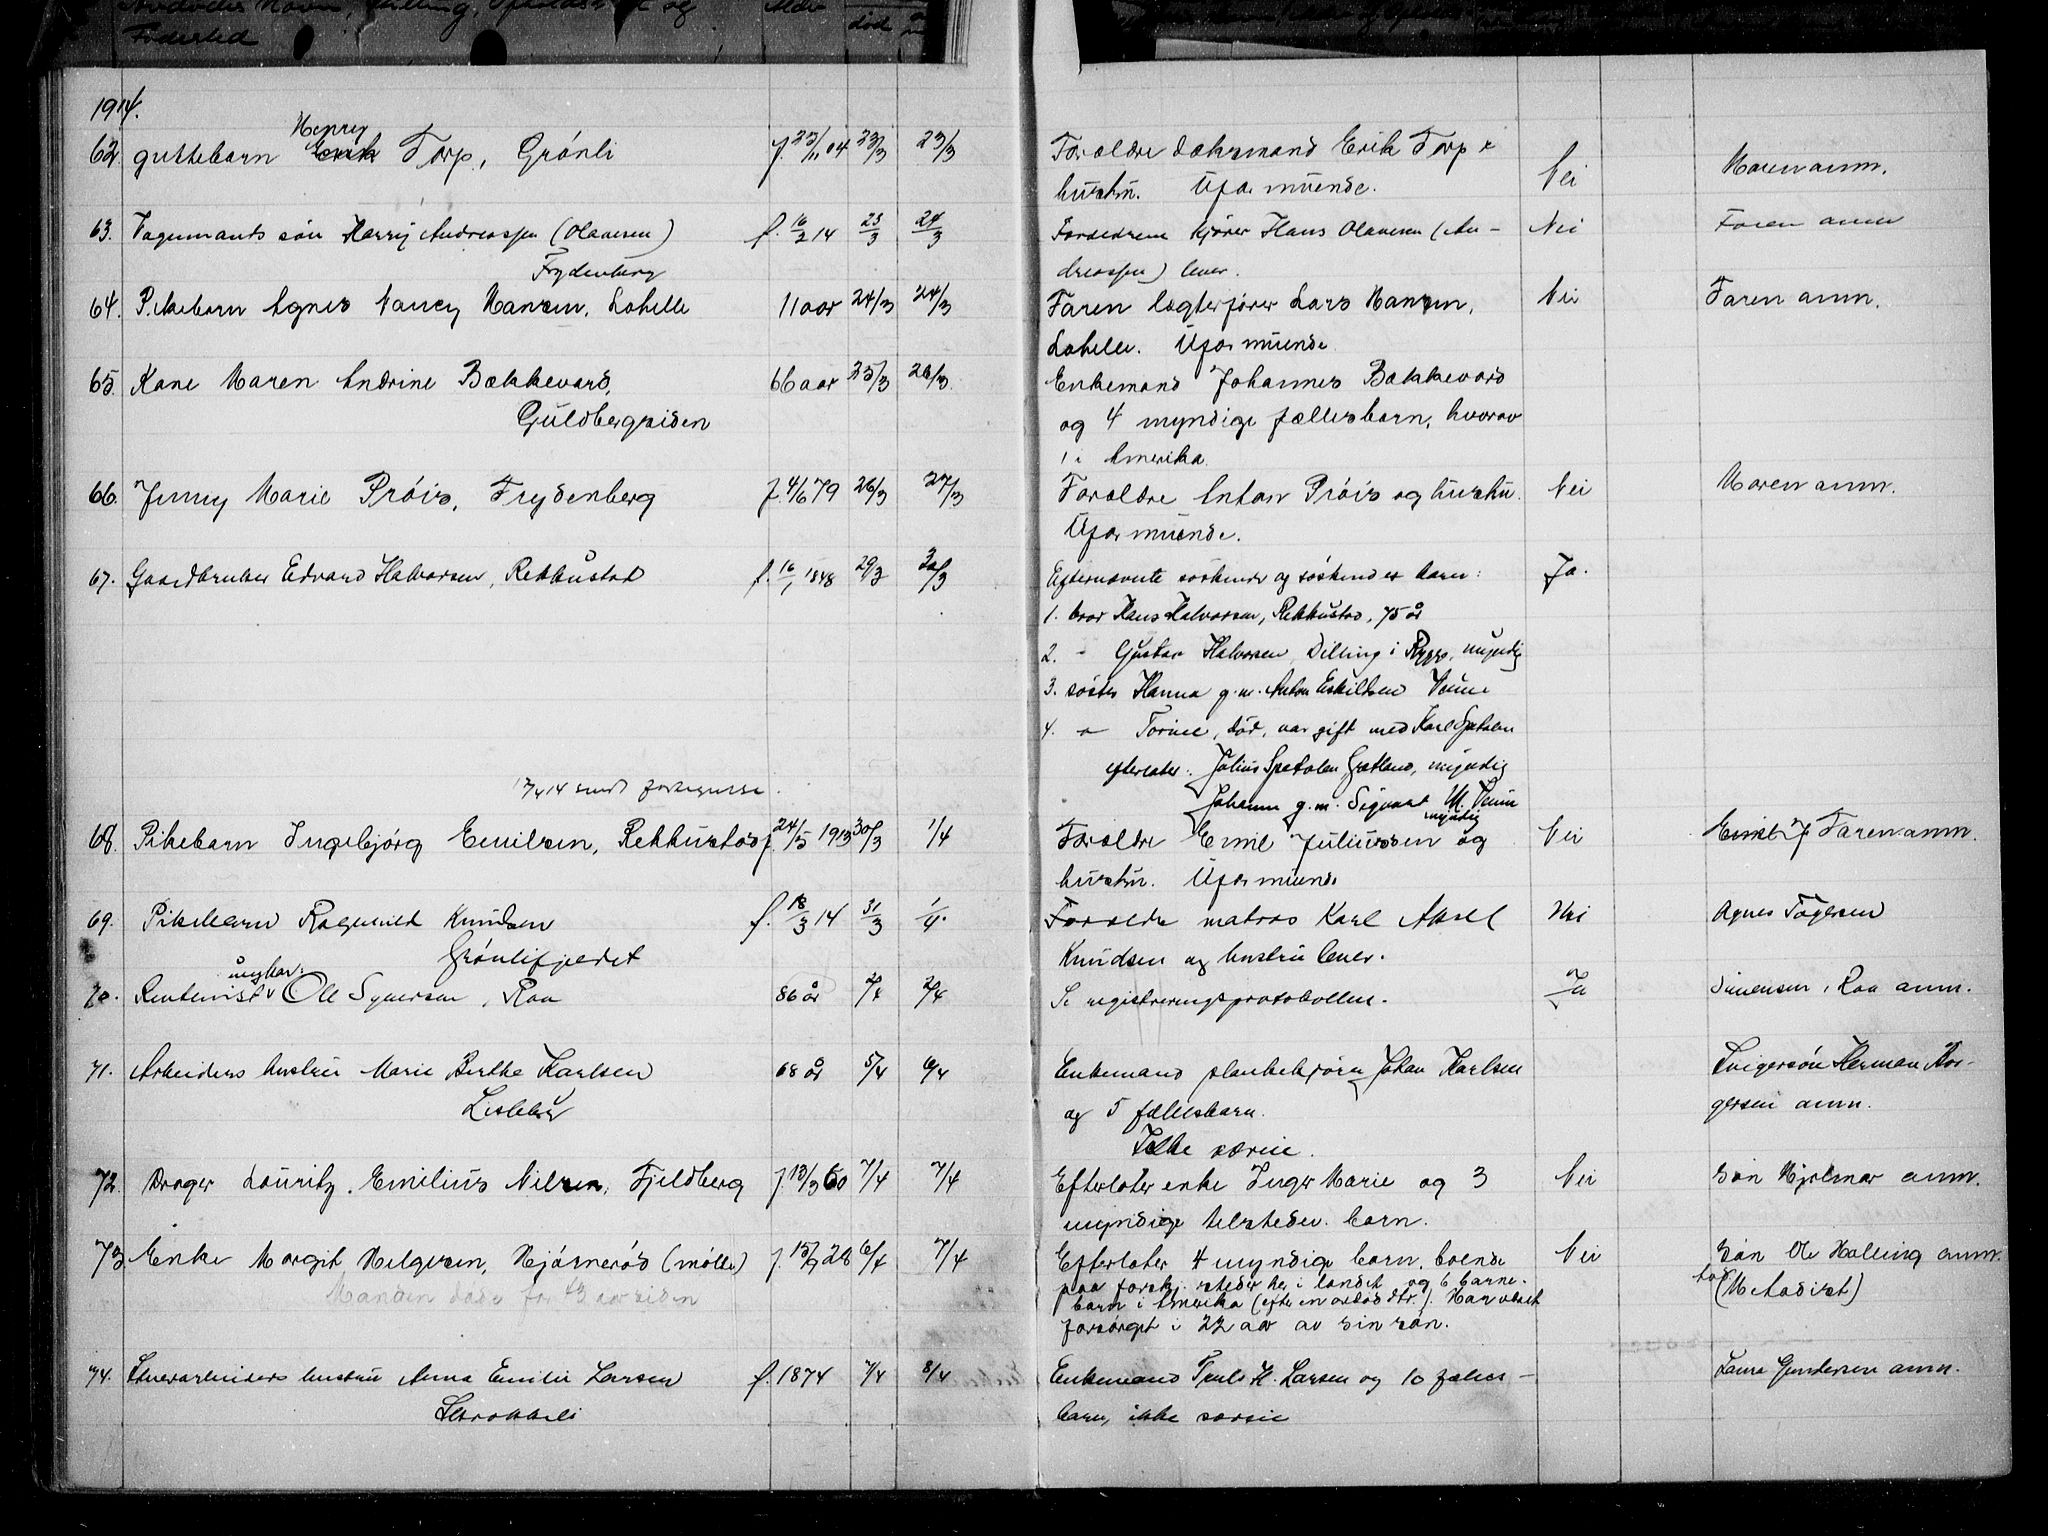 Avdødes Navn, Stilling, Opholdssted og
Fødested
død
1914.
Henry
62. guttebarn Erik Torp, Grønli f. 22/11 04 23/3 23/3 Forældre løksmand Erik Torp &
hustru. Uformuende. Nei Moren anm.
63. Vognmands søn Harry Andreassen (Olavesen) f. 16/2 14 23/3 24/3 Forældrene kjører Hans Olavesen (An- Nei Faren anm
Frydenberg dreassen) lever.
64. Pikebarn Agnes Nancy Hansen, Lahelle 11 aar 24/3 24/3 Faren lægterfører Lars Hansen, Nei Faren anm.
Lahelle. Uformuende
65. Kone Maren Andrine Bækkevard, 66 aar 25/3 26/3 Enkemand Johannes Bækkevard
Guldbergsiden og 4 myndige fællesbarn, hvorav
1 i Amerika
66. Jenny Marie Prøis, Frydenberg f. 4/6 79 26/3 27/3 Forældre Anton Prøis og hustru. Nei Moren anm.
Uformuende.
67. Gaardbruker Edvard Halvorsen, Rekkustad f. 16/1 1848 29/3 30/3 Efternævnte søskende og søskendes barn: Ja.
1. bror Hans Halvorsen, Rekkustad, 75 år
2. - Gustav Halvorsen Dilling i Rygge, myndig
3. søster Hanna g. m. Anton Eskildsen Venne
4. - Torine, død, var gift med Karl Spetalen
efterlater: Julius Spetalen Grætland, myndig
17/4 14 sendt fortegnelse.
Johanne g. m. Sigvart M. Venn
myndig
68. Pikebarn Ingebjørg Emilsen, Rekkustad f. 24/5 1913 30/3 1/4 Forældre Emil Juliussen og Nei Emil J Faren anm.
hustru. Uformuende
69. Pikebarn Ragnhild Knudsen f. 18/3 14 31/3 1/4. Forældre matros Karl Aksel Nei Agnes Togersen
Grønlifjeldet Knudsen og hustru lever.
ungkar.
70. Rentenist Ole Syversen, Roa 86 år 2/4 2/4 Se registreringsprotokollen. Ja Simensen, Roa anm.
71. Arbeiders hustru Marie Berthe Karlsen 68 år 5/4 6/4 Enkemand plankekjører Johan Karlsen Svigersøn Herman Aor-
Lisleby og 5 fællesbarn. gersen anm.
Ikke særeie.
72. Drager Lauritz Emilius Nilsen, Fjeldberg f. 13/3 60 7/4 7/4 Efterlater enke Inger Marie og 3 Nei Søn Hjalmar anm.
myndige tilstedev. barn.
73 Enke Margit Helgesen, Hjørnerød (mølle) f. 15/9 28 6/4 7/4 Efterlater 4 myndige barn, boende Nei Søn Ole Halling anm.
Manden døde for 43 aar siden paa forskj. steder her i landet og 6 barne- (Metodist)
barn i Amerika (efter en avdød dtr.). Har været
forsørget i 22 aar av sin søn.
74. Stuerarbeiders hustru Anna Emilie Larsen f. 1874 7/4 8/4 Enkemand Truls H. Larsen og 10 fælles- Laura Gundersen anm.
Strokkeli barn, ikke særeie